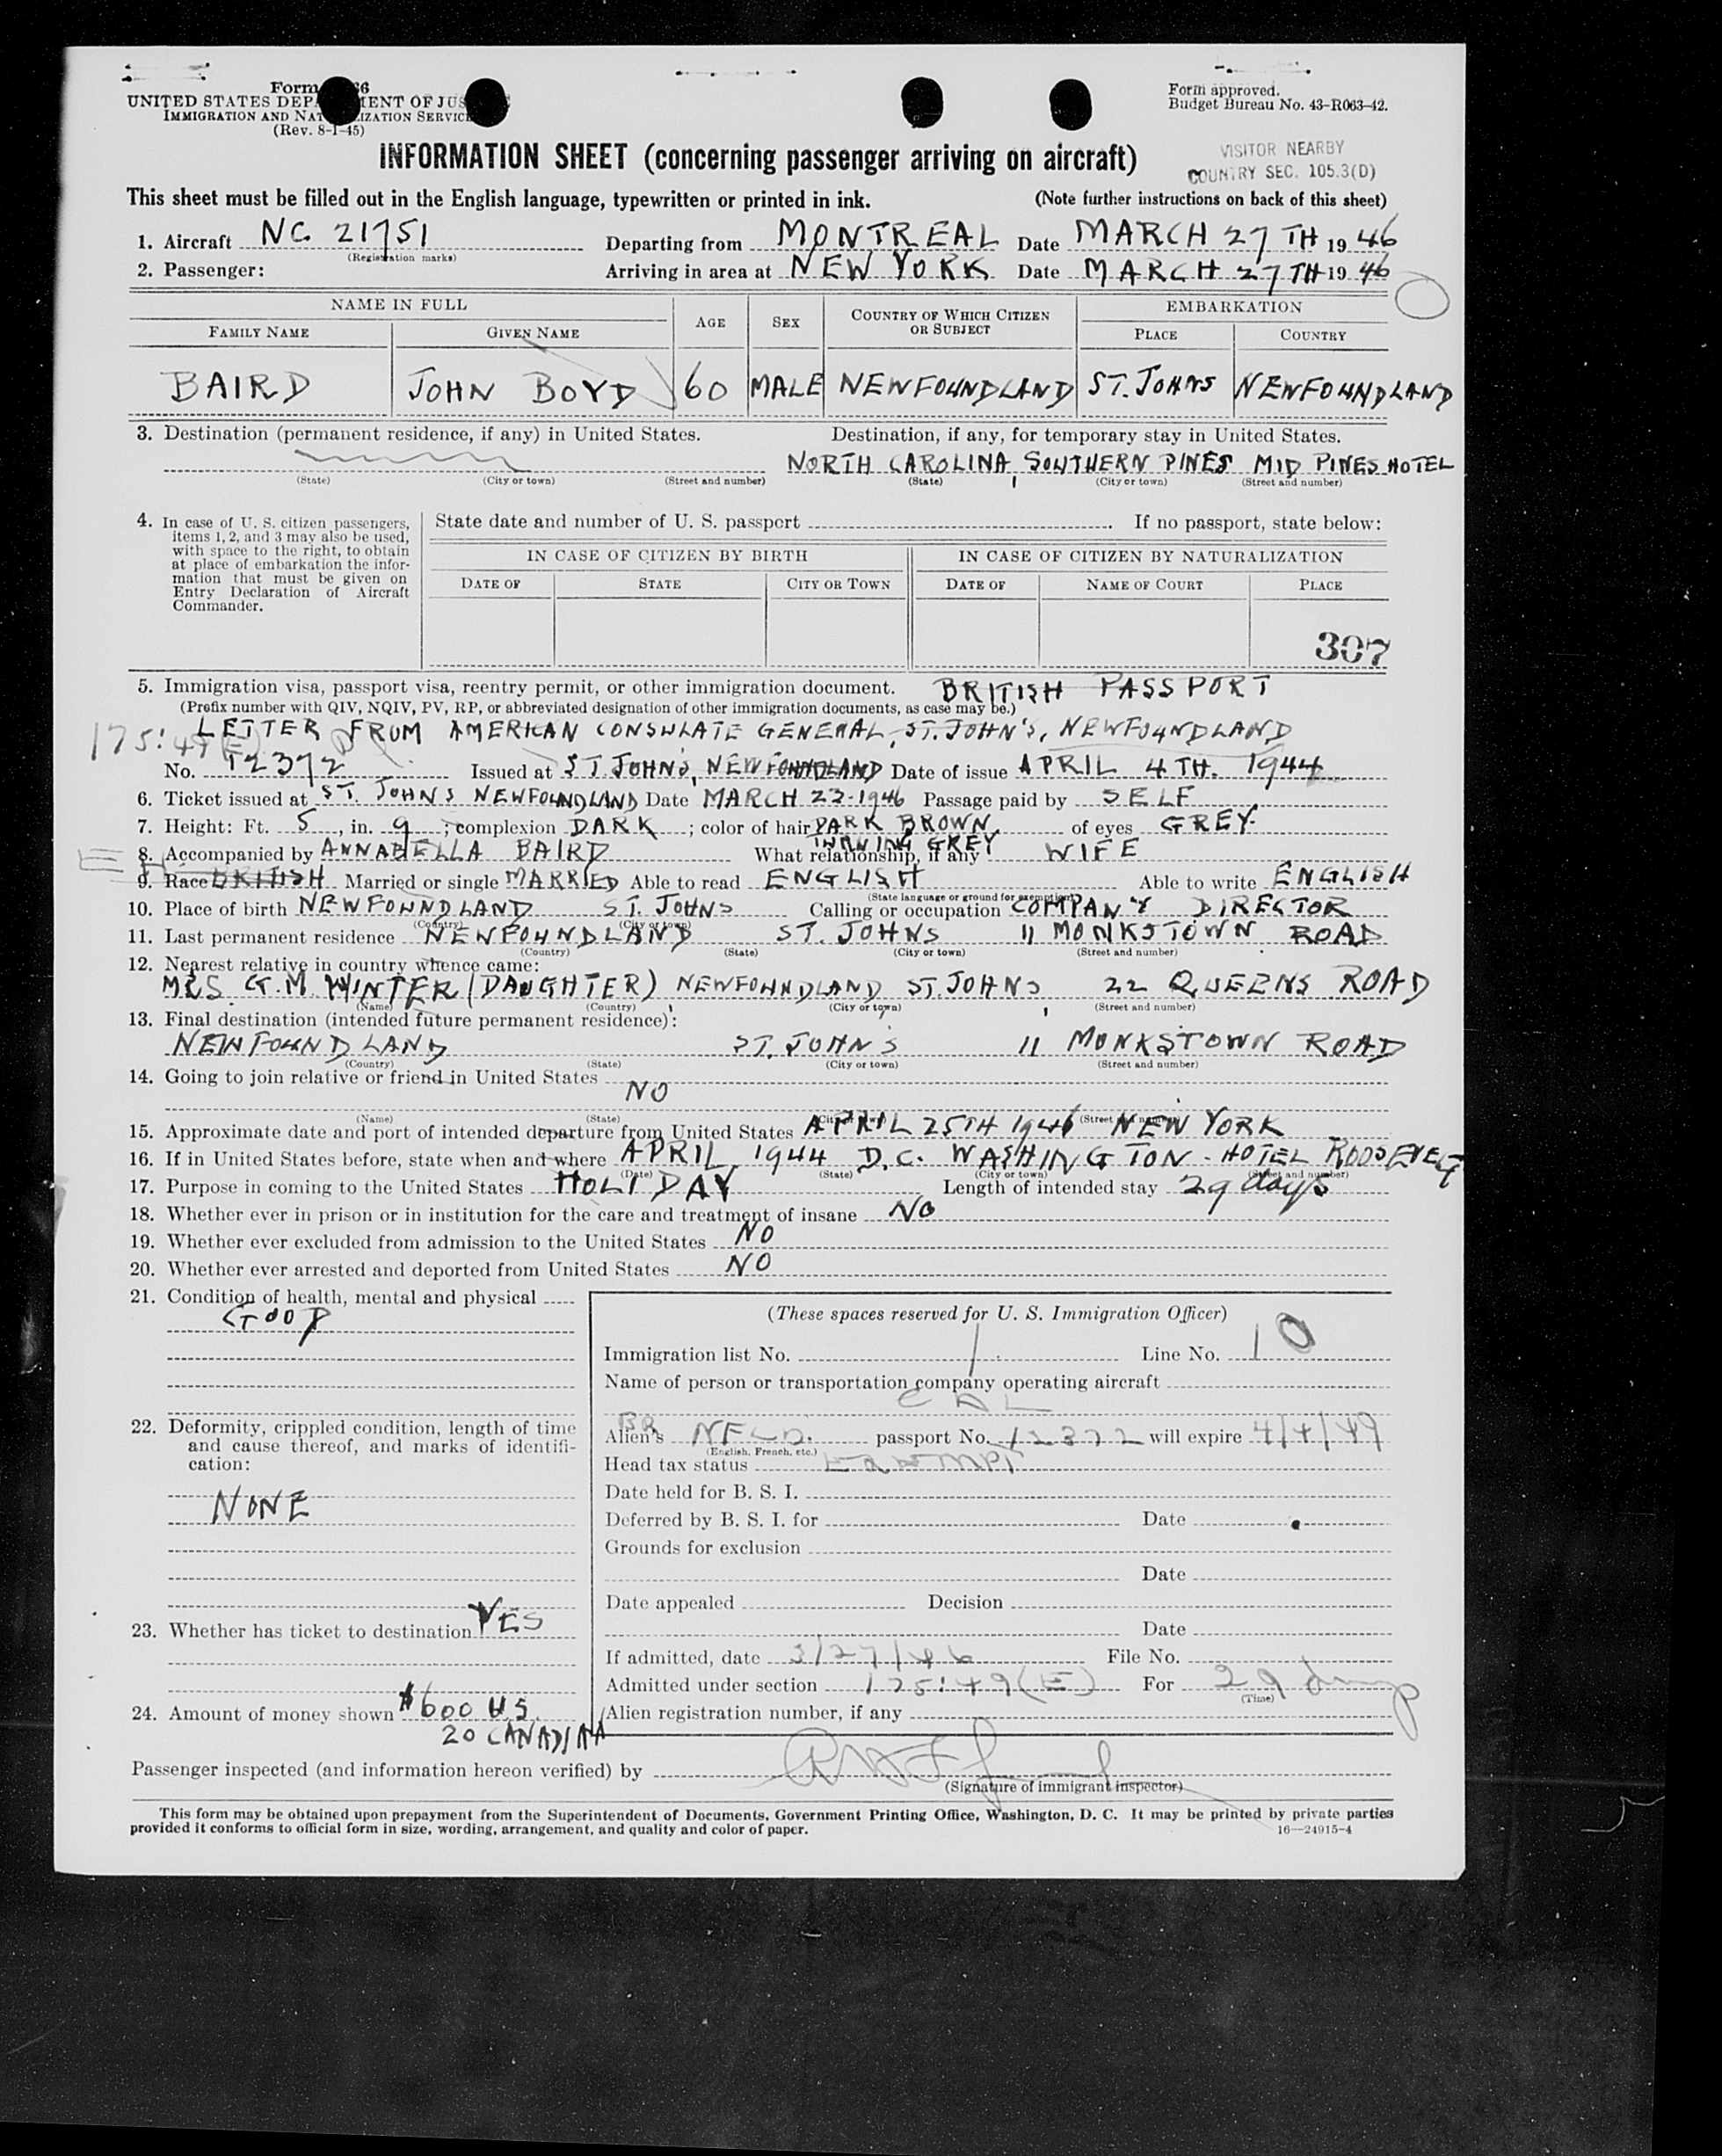 Form 66
UNITED STATES DEP MENT OF JUS
IMMIGRATION AND NAT IZATION SERVICE
(Rev. 8-1-45)
Form approved.
Budget Bureau No. 43-R063-42.
INFORMATION SHEET (concerning passenger arriving on aircraft)
VISITOR NEARBY
COUNTRY SEC. 105.3(D)
This sheet must be filled out in the English language, typewritten or printed in ink. (Note further instructions on back of this sheet)
1. Aircraft NC 21751 Departing from MONTREAL Date MARCH 27TH 1946
(Registration marks)
2. Passenger: Arriving in area at NEW YORK Date MARCH 27TH 1946
NAME IN FULL AGE SEX COUNTRY OF WHICH CITIZEN OR SUBJECT EMBARKATION
FAMILY NAME GIVEN NAME PLACE COUNTRY
BAIRD JOHN BOYD 60 MALE NEWFOUNDLAND ST. JOHNS NEWFOUNDLAND
3. Destination (permanent residence, if any) in United States. Destination, if any, for temporary stay in United States.
NORTH CAROLINA, SOUTHERN PINES MID PINES HOTEL
(State) (City or town) (Street and number) (State) (City or town) (Street and number)
4. In case of U. S. citizen passengers, items 1, 2, and 3 may also be used, with space to the right, to obtain at place of embarkation the information that must be given on Entry Declaration of Aircraft Commander.
State date and number of U. S. passport . If no passport, state below:
IN CASE OF CITIZEN BY BIRTH IN CASE OF CITIZEN BY NATURALIZATION
DATE OF STATE CITY OR TOWN DATE OF NAME OF COURT PLACE
307
5. Immigration visa, passport visa, reentry permit, or other immigration document. BRITISH PASSPORT
(Prefix number with QIV, NQIV, PV, RP, or abbreviated designation of other immigration documents, as case may be.)
175:49(E) LETTER FROM AMERICAN CONSULATE GENERAL, ST. JOHN'S, NEWFOUNDLAND
No. 12372 Issued at ST. JOHN'S, NEWFOUNDLAND Date of issue APRIL 4TH. 1944
6. Ticket issued at ST. JOHNS NEWFOUNDLAND Date MARCH 23-1946 Passage paid by SELF
7. Height: Ft. 5, in. 9; complexion DARK; color of hair DARK BROWN TURNING GREY of eyes GREY
8. Accompanied by ANNABELLA BAIRD What relationship, if any WIFE
9. Race BRITISH Married or single MARRIED Able to read ENGLISH Able to write ENGLISH
(State language or ground for exemption)
10. Place of birth NEWFOUNDLAND ST. JOHNS Calling or occupation COMPANY DIRECTOR
(Country) (City or town)
11. Last permanent residence NEWFOUNDLAND ST. JOHNS 11 MONKSTOWN ROAD
(Country) (State) (City or town) (Street and number)
12. Nearest relative in country whence came:
MRS. G.M. WINTER (DAUGHTER) NEWFOUNDLAND ST. JOHNS 22 QUEENS ROAD
(Name) (Country) (City or town) (Street and number)
13. Final destination (intended future permanent residence):
NEWFOUNDLAND ST. JOHN'S 11 MONKSTOWN ROAD
(Country) (State) (City or town) (Street and number)
14. Going to join relative or friend in United States
NO
(Name) (State) (City or town) (Street and number)
15. Approximate date and port of intended departure from United States APRIL 25TH 1946 NEW YORK
16. If in United States before, state when and where APRIL, 1944 D.C. WASHINGTON - HOTEL ROOSEVELT
(Date) (State) (City or town) (Street and number)
17. Purpose in coming to the United States HOLIDAY Length of intended stay 29 days
18. Whether ever in prison or in institution for the care and treatment of insane NO
19. Whether ever excluded from admission to the United States NO
20. Whether ever arrested and deported from United States NO
21. Condition of health, mental and physical
GOOD
22. Deformity, crippled condition, length of time and cause thereof, and marks of identification:
NONE
23. Whether has ticket to destination YES
24. Amount of money shown $600 U.S.
20 CANADIAN
(These spaces reserved for U. S. Immigration Officer)
Immigration list No. 1 Line No. 10
Name of person or transportation company operating aircraft
CAL
Alien's BR NFLD. passport No. 12372 will expire 4/4/49
(English, French, etc.)
Head tax status Exempt
Date held for B. S. I.
Deferred by B. S. I. for Date
Grounds for exclusion
Date
Date appealed Decision
Date
If admitted, date 3/27/46 File No.
Admitted under section 175:49(E) For 29 days
(Time)
Alien registration number, if any
Passenger inspected (and information hereon verified) by
(Signature of immigrant inspector)
This form may be obtained upon prepayment from the Superintendent of Documents, Government Printing Office, Washington, D. C. It may be printed by private parties
provided it conforms to official form in size, wording, arrangement, and quality and color of paper. 16—24915-4